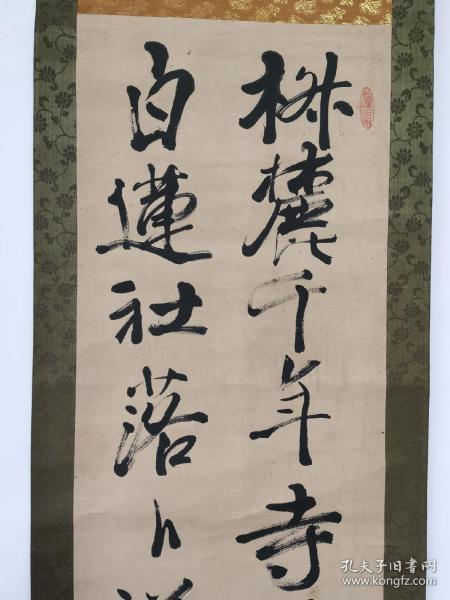 林麓千年寺
白蓮社落
孔夫子旧书网
www.kongfz.com